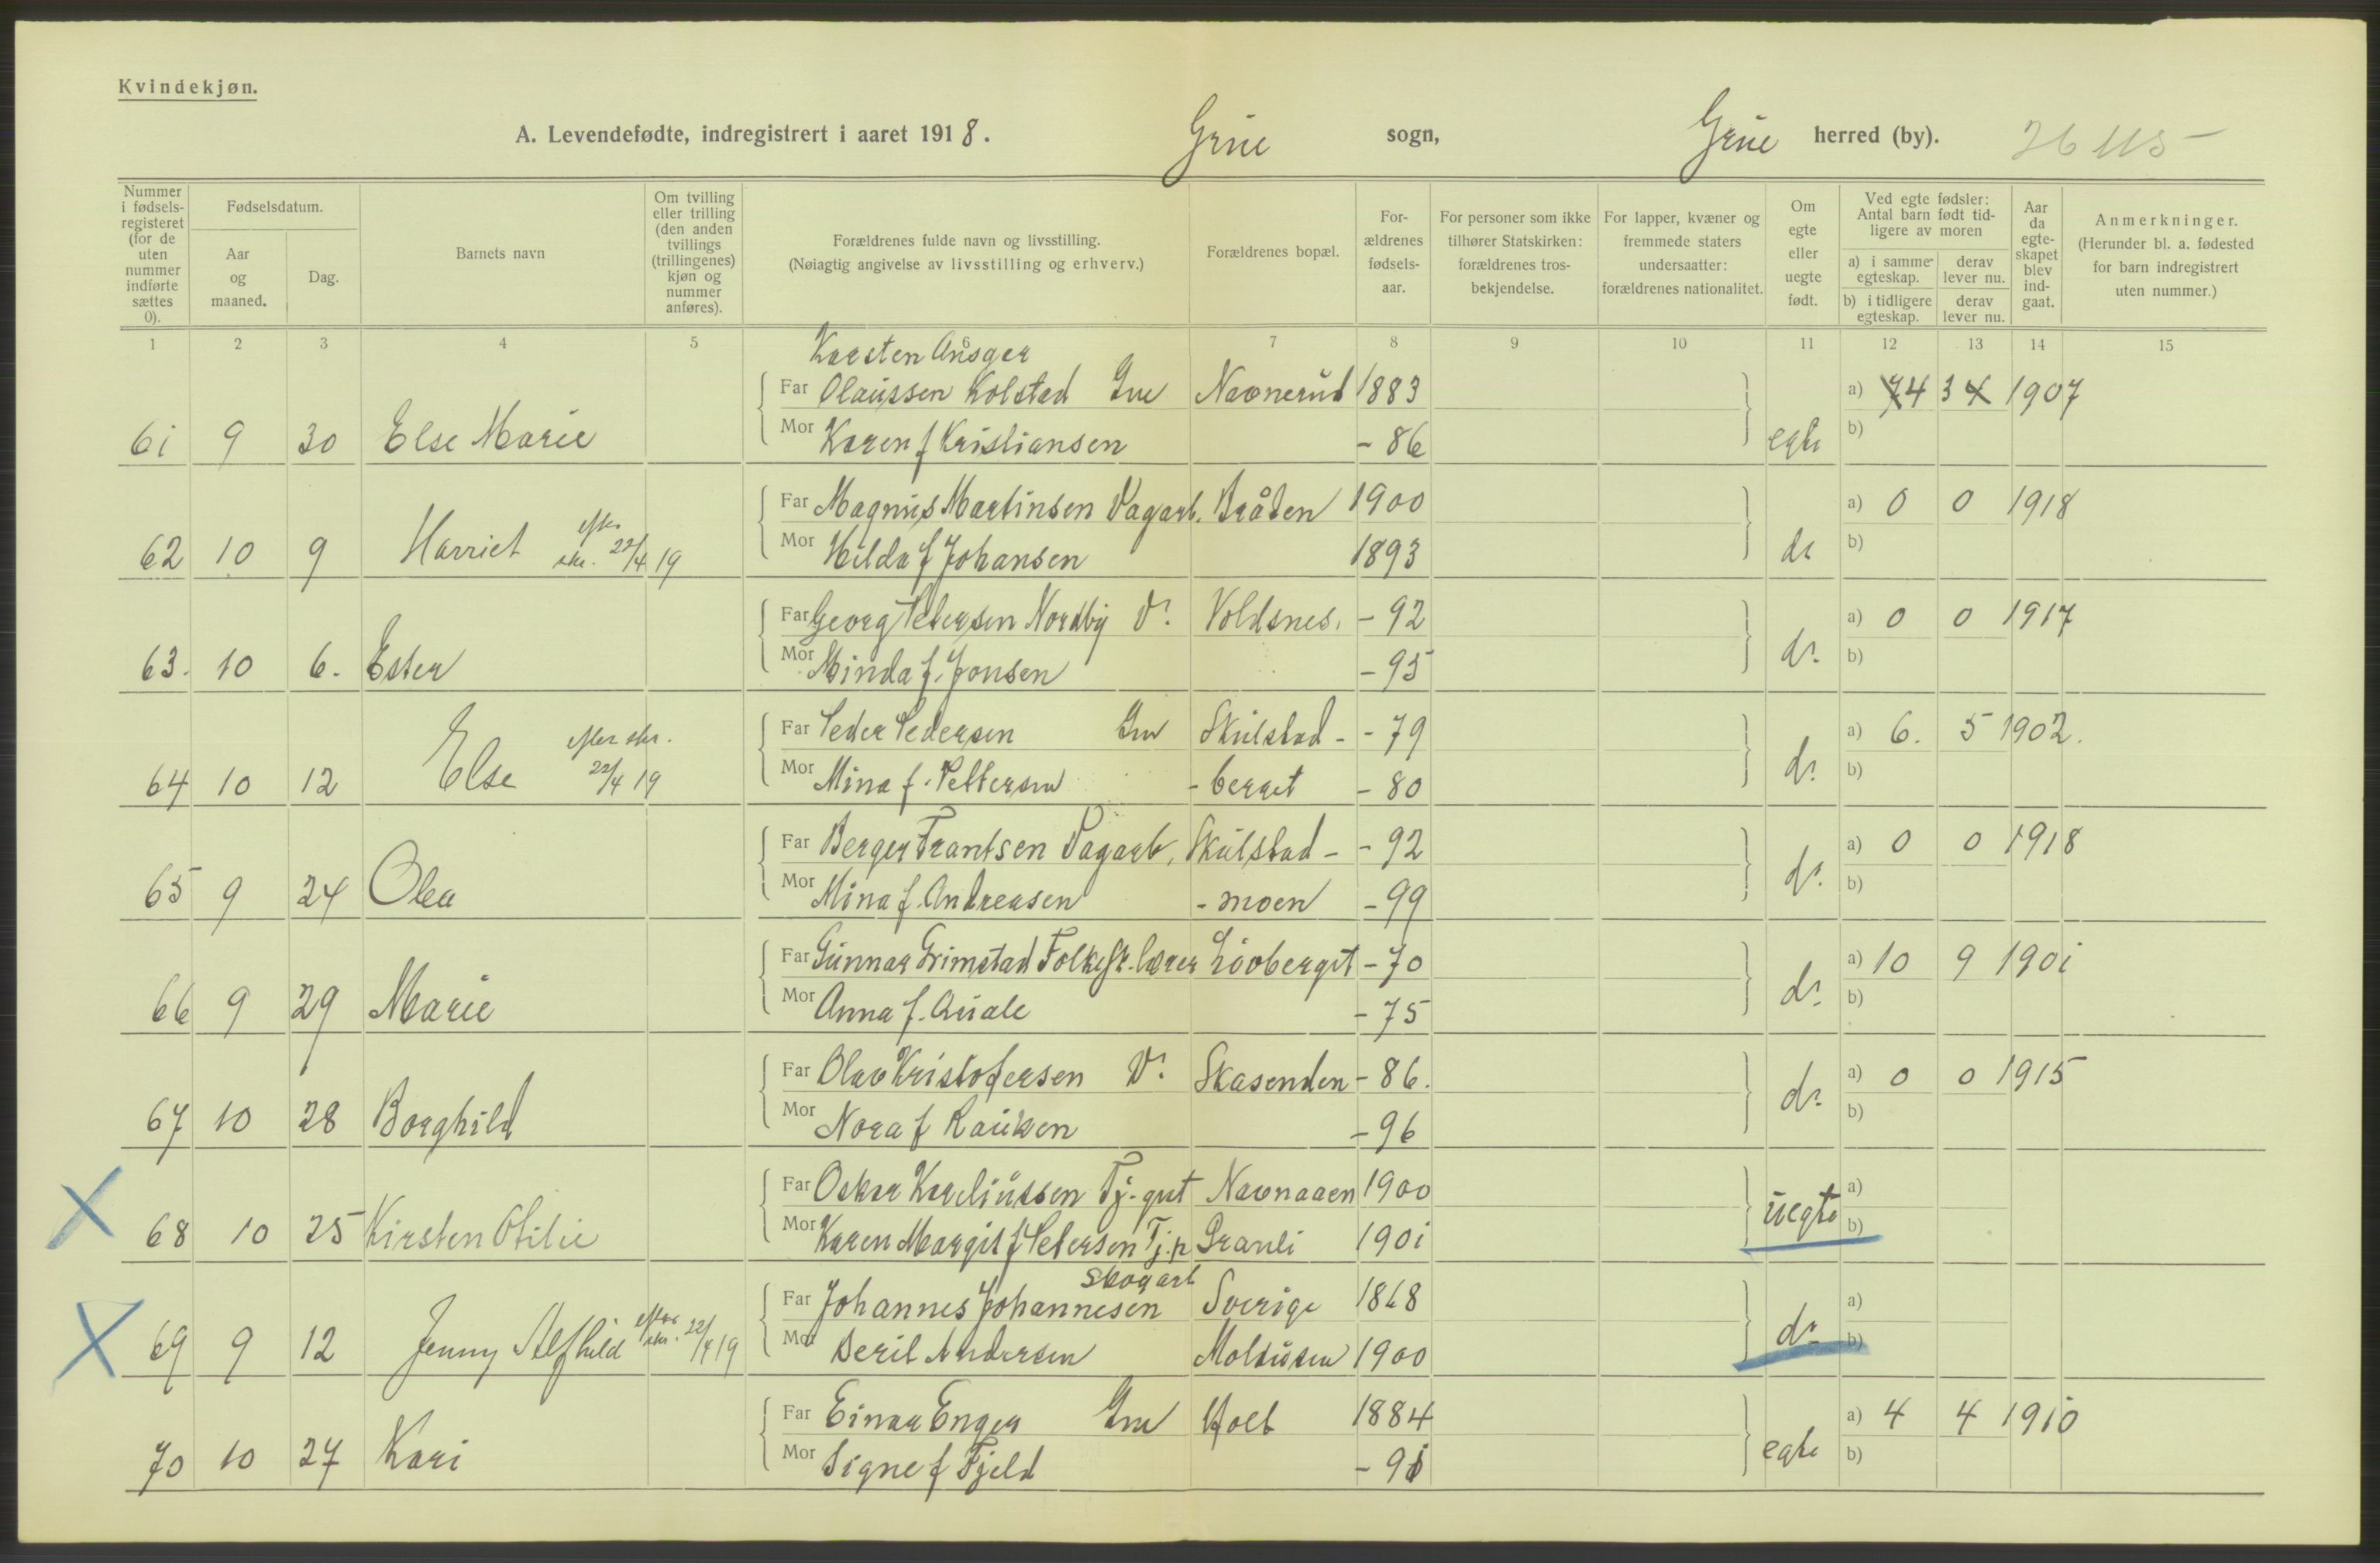 Kvindekjøn.
A. Levendefødte, indregistrert i aaret 1918. Grue sogn, Grue herred (by).
Nummer i fødsels-registeret (for de uten nummer indførte sættes 0).
Fødselsdatum.
Aar og maaned.
Dag.
Barnets navn
Om tvilling eller trilling (den anden tvillings (trillingenes) kjøn og nummer anføres).
Forældrenes fulde navn og livsstilling.
(Nøiagtig angivelse av livsstilling og erhverv.)
Forældrenes bopæl.
For-ældrenes fødsels-aar.
For personer som ikke tilhører Statskirken: forældrenes tros-bekjendelse.
For lapper, kvæner og fremmede staters undersaatter: forældrenes nationalitet.
Om egte eller uegte født.
Ved egte fødsler: Antal barn født tid-ligere av moren
a) i samme egteskap.
derav lever nu.
b) i tidligere egteskap.
derav lever nu.
Aar da egte-skapet blev ind-gaat.
Anmerkninger.
(Herunder bl. a. fødested for barn indregistrert uten nummer.)
1 2 3 4 5 6 7 8 9 10 11 12 13 14 15
Karsten Ansger
Far Olaussen Kolstad Gru Navnerud 1883 a) 74 34 1907
61 9 30 Else Marie Mor Karen f Kristiansen - 86 egte b)
Far Magnus Martinsen Dagarb. Bråten 1900 a) 0 0 1918
62 10 9 Harriet efter skr. 22/4 19 Mor Hilda f Johansen 1893 do b)
Far Georg Petersen Nordby D. Voldsnes. - 92 a) 0 0 1917
63. 10 6. Ester Mor Minda f. Jonsen - 95 do. b)
Far Peder Pedersen Gru Skulstad- - 79 a) 6. 5 1902.
64 10 12 Else efter skr. 22/4 19 Mor Mina f. Pettersen - berget - 80 do. b)
Far Berger Frantsen Dagarb. Skulstad- - 92 a) 0 0 1918
65 9 24 Olea Mor Mina f. Andreasen - moen - 99 do. b)
Far Gunnar Grimstad Folkesk. lærer Løvberget - 70 a) 10 9 1901
66 9 29 Marie Mor Anna f. Quale - 75 do. b)
Far Olav Kristofersen D. Skasenden - 86. a) 0 0 1915
67 10 28 Borghild Mor Nora f Kauksen - 96 do. b)
Far Oskar Kareliussen Tj. gut Navnaaen 1900 a)
68 10 25 Kirsten Otilie Mor Karen Margit f Petersen Tj. p Granli 1901 uegte b)
Skogarb
Far Johannes Johannesen Sverige 1868 a)
69 9 12 Jenny Alfhild efter skr. 22/4 19 Mor Beril Andersen 1900 do b)
Far Einar Enger Gru Holt 1884 a) 4 4 1910
70 10 27 Kari Mor Signe f Fjeld - 91 egte b)